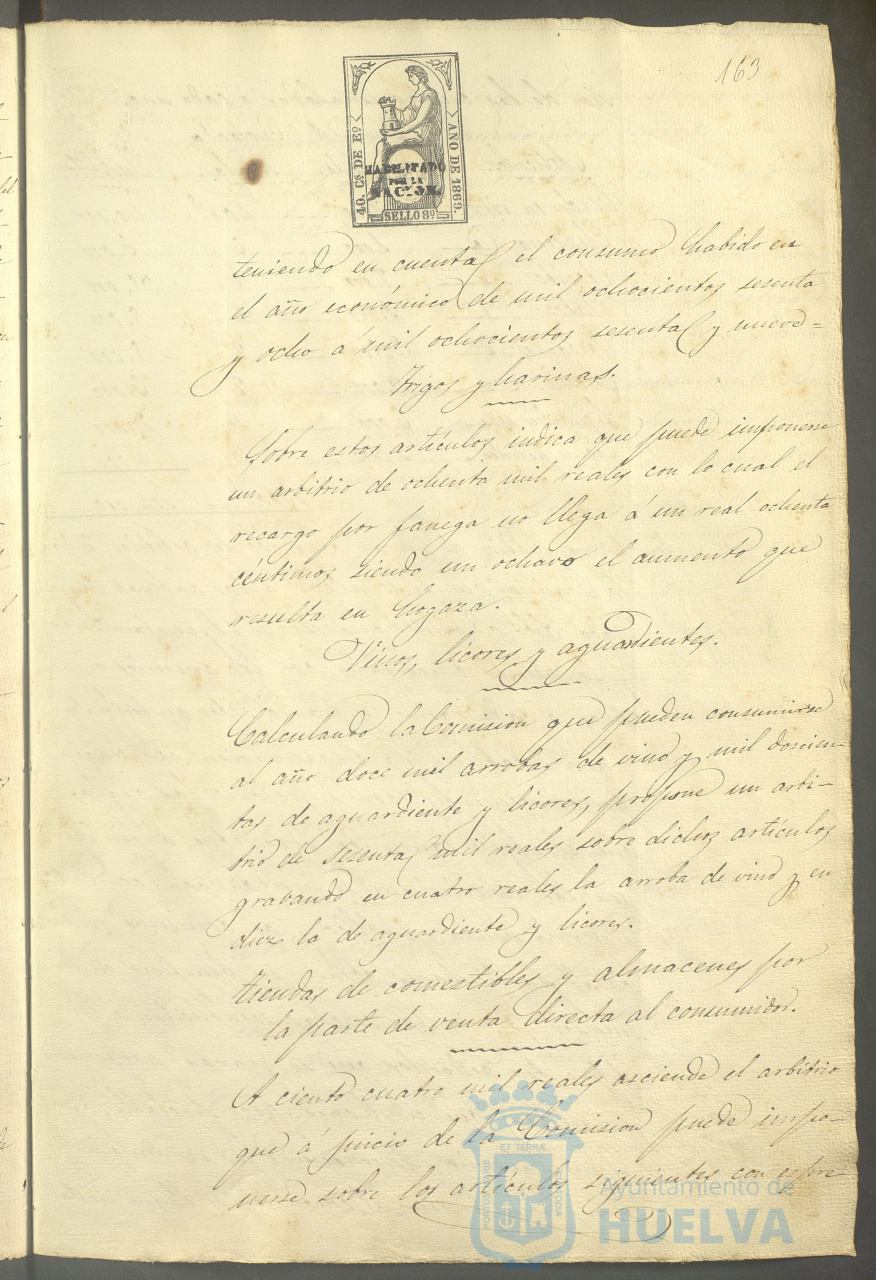 163
40. Cs DE Eo.
AÑO DE 1869.
HABILITADO
POR LA
NACION.
SELLO 8º
teniendo en cuenta el consumo habido en
el año económico de mil ochocientos sesenta
y ocho á mil ochocientos sesenta y nueve=
Trigos y harinas.
Sobre estos artículos indica que puede imponerse
un arbitrio de ochenta mil reales con lo cual el
recargo por fanega no llega á un real ochenta
céntimos siendo un ochavo el aumento que
resulta en hogaza.
Vinos, licores y aguardientes.
Calculando la Comision que pueden consumirse
al año doce mil arrobas de vino y mil doscien-
tas de aguardiente y licores, propone un arbi-
trio de sesenta mil reales sobre dichos artículos
grabando en cuatro reales la arroba de vino y en
diez la de aguardiente y licores.
Tiendas de comestibles y almacenes por
la parte de venta directa al consumidor.
A ciento cuatro mil reales asciende el arbitrio
que á juicio de la Comision puede impo-
nerse sobre los artículos siguientes con espre
ET TERRÆ
PORTUS MARIS
CUSTODIA
Ayuntamiento de
HUELVA